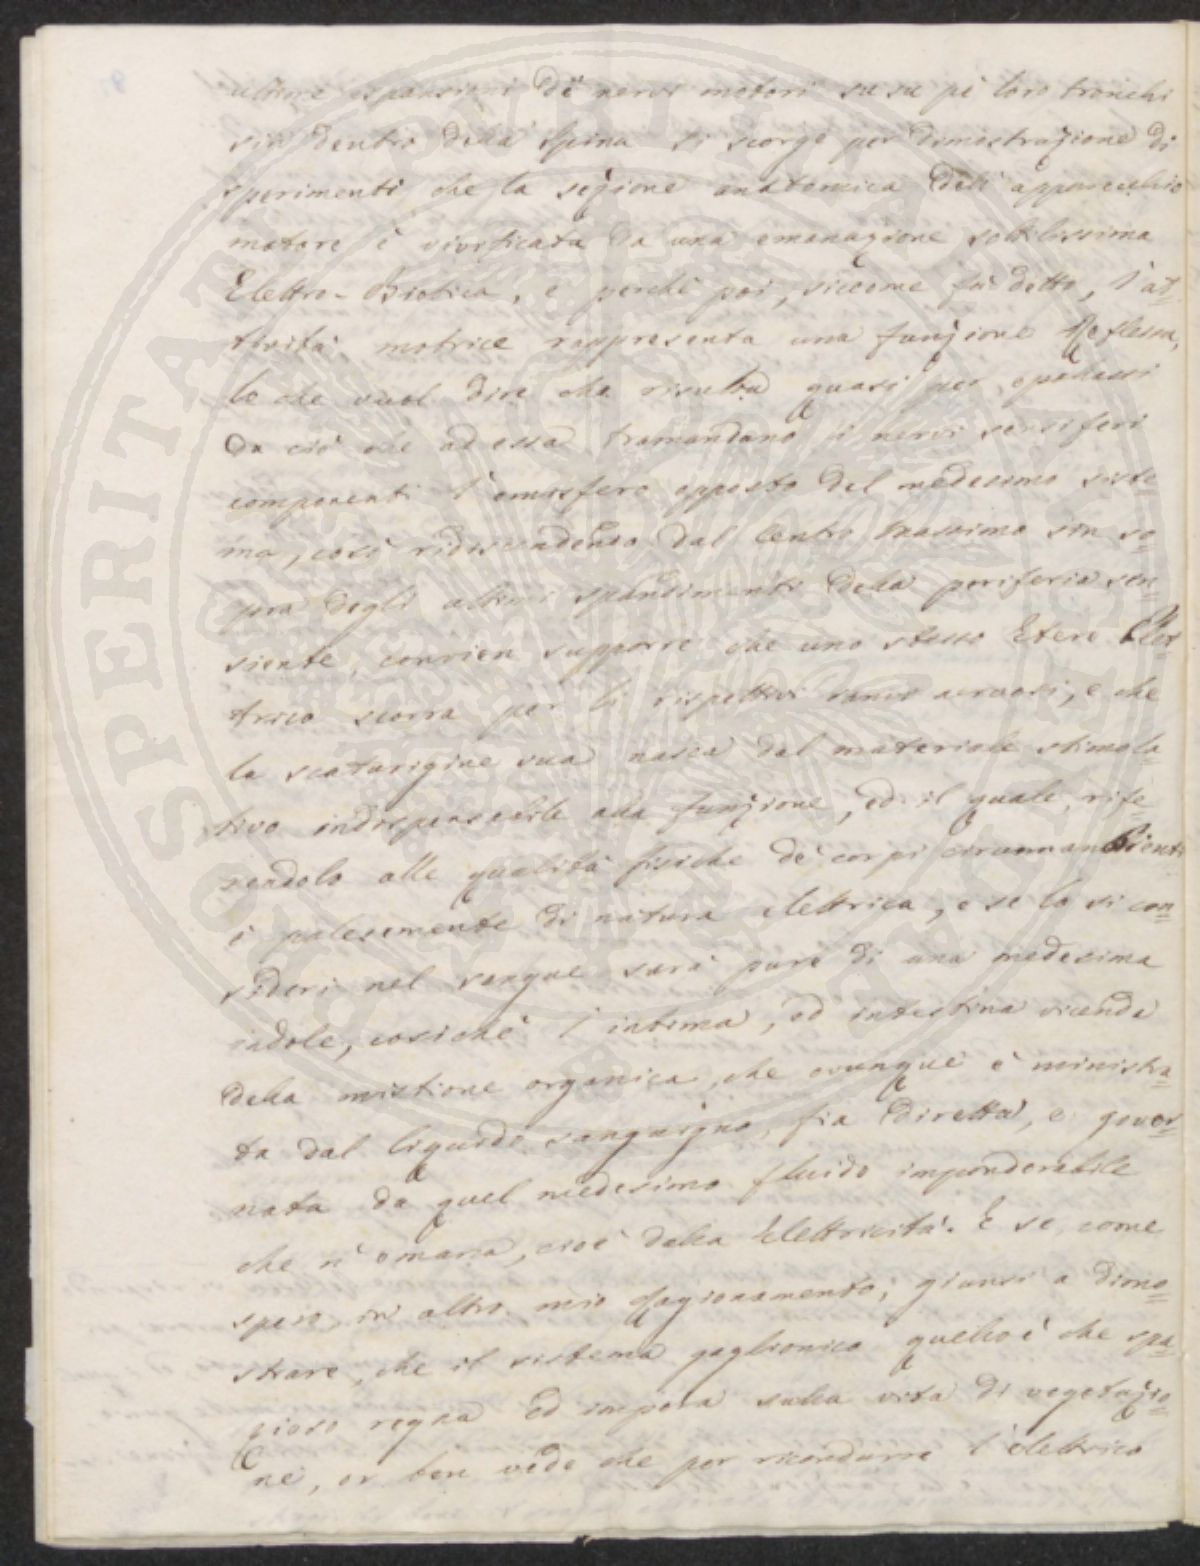 ultime espansioni de' nervi motori su su pe' loro tronchi
sin dentro della spina si scorge per dimostrazione di
sperimenti che la sezione anatomica dell' apparecchio
motore è vivificata da una emanazione sottilissima
Elettro-Biotica, e perchè poi, siccome fù detto, l'at=
tività motrice rappresenta una funzione Reflessa,
lo che vuol dire che risulta quasi per
da ciò che ad essa tramandano i nervi sensiferi
componenti l'emisfero opposto del medesimo siste=
ma, così ridiscendendo dal Centro massimo sin so=
pra degli ultimi spandimenti della periferia sen=
siente, convien supporre che uno stesso Etere Elet=
trico scorra per li rispettivi rami nervosi, e che
la scaturigine sua nasca dal materiale stimola=
tivo indispensabile alla funzione, ed il quale, rife=
rendolo alle qualità fisiche de' corpi circumambienti
è palesemente di natura elettrica, e se lo si con=
sideri nel sangue sarà pure di una medesima
indole, cosichè l'intima, ed intestina vicenda
della mistione organica, che ovunque è ministra=
ta dal liquido sanguigno, sia diretta, e gover=
nata da quel medesimo fluido imponderabile
che n'emana, cioè dalla Elettricità. E se, come
spero, in altro mio Ragionamento, giunsi a dimo=
strare, che il sistema ganglionico quello è che spa=
zioso regna ed impera sulla vita di vegetazio=
ne, or ben vede che per ricondurre l'elettrico
SOSPERITATI PUBLICAE AUGENDAE